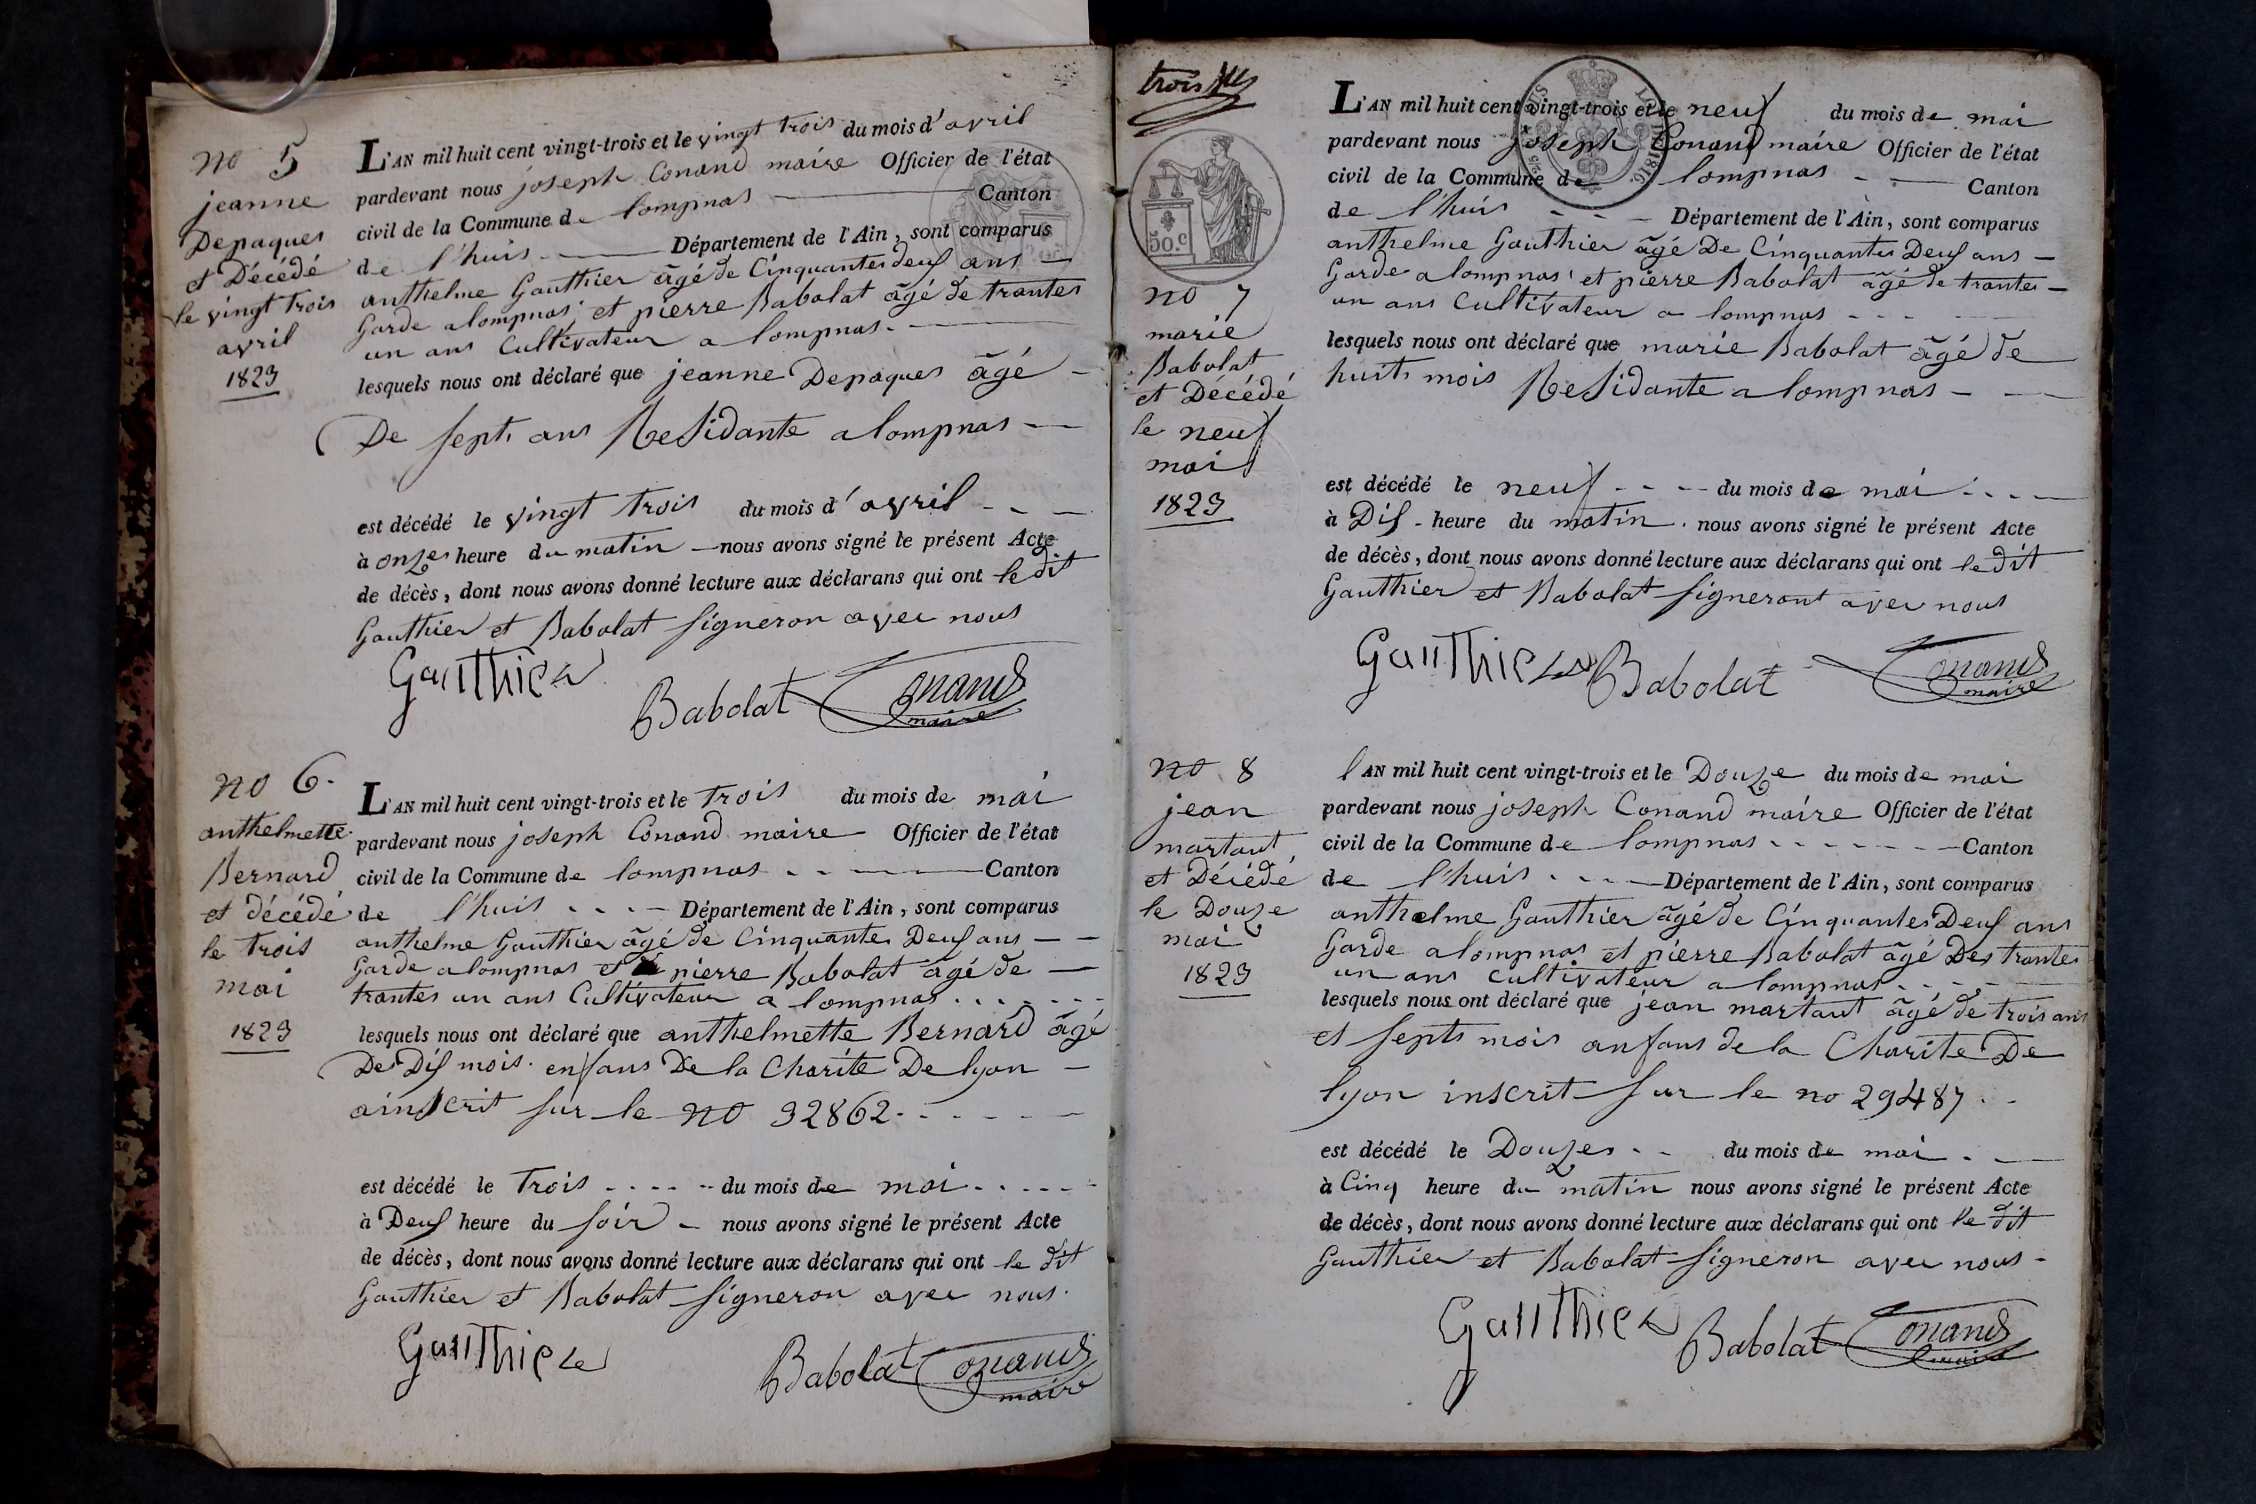 no 5
jeanne
Depaques
et Décédé
le vingt trois
avril
1823
L'AN mil huit cent vingt-trois et le vingt trois du mois d'avril
pardevant nous joseph Conand maire Officier de l'état
civil de la Commune de lompnas Canton
de l'huis Département de l'Ain, sont comparus
anthelme Gauthier âgé de Cinquantes deus ans
Garde a lompnas et pierre Babolat âgé de trantes
un ans Cultivateur a lompnas
lesquels nous ont déclaré que jeanne Depaques âgé
De septs ans Residante a lompnas
est décédé le vingt trois du mois d'avril
à onzes heure du matin nous avons signé le présent Acte
de décès, dont nous avons donné lecture aux déclarans qui ont le dit
Gauthier et Babolat signeron avec nous
Gauthier
Babolat Conand
maire
no 6.
anthelmette
Bernard
et décédé
le trois
mai
1823
L'AN mil huit cent vingt-trois et le trois du mois de mai
pardevant nous joseph Conand maire Officier de l'état
civil de la Commune de lompnas Canton
de l'huis Département de l'Ain, sont comparus
anthelme Gauthier âgé de Cinquantes Deus ans
Garde a lompnas et pierre Babolat âgé de
trantes un ans Cultivateur a lompnas
lesquels nous ont déclaré que anthelmette Bernard âgé
De Dis mois enfans De la Charite De lyon
ainscrit sur le no 32862
est décédé le trois du mois de mai
à Deus heure du soir nous avons signé le présent Acte
de décès, dont nous avons donné lecture aux déclarans qui ont le dit
Gauthier et Babolat signeron avec nous.
Gauthier
Babolat Conand
maire
trois
50.c
no 7
marie
Babolat
et Décédé
le neuf
mai
1823
L'AN mil huit cent vingt-trois et le neuf du mois de mai
pardevant nous joseph Conand maire Officier de l'état
civil de la Commune de lompnas Canton
de l'huis Département de l'Ain, sont comparus
anthelme Gauthier âgé De Cinquantes Deus ans
Garde a lompnas et pierre Babolat âgé de trantes
un ans Cultivateur a lompnas
lesquels nous ont déclaré que marie Babolat âgé de
huits mois Residante a lompnas
est décédé le neuf du mois de mai
à Dis heure du matin. nous avons signé le présent Acte
de décès, dont nous avons donné lecture aux déclarans qui ont le dit
Gauthier et Babolat signeront avec nous
Gauthier Babolat Conand
maire
no 8
jean
martaut
et Décédé
le Douze
mai
1823
l'AN mil huit cent vingt-trois et le Douze du mois de mai
pardevant nous joseph Conand maire Officier de l'état
civil de la Commune de lompnas Canton
de l'huis Département de l'Ain, sont comparus
anthelme Gauthier âgé de Cinquantes Deus ans
Garde a lompnas et pierre Babolat âgé Des trantes
un ans cultivateur a lompnas
lesquels nous ont déclaré que jean martaut âgé de trois ans
et septs mois anfans de la Charite De
lyon inscrit sur le no 29487
est décédé le Douzes du mois de mai
à Cinq heure du matin nous avons signé le présent Acte
de décès, dont nous avons donné lecture aux déclarans qui ont le dit
Gauthier et Babolat signeron avec nous
Gauthier Babolat Conand
maire